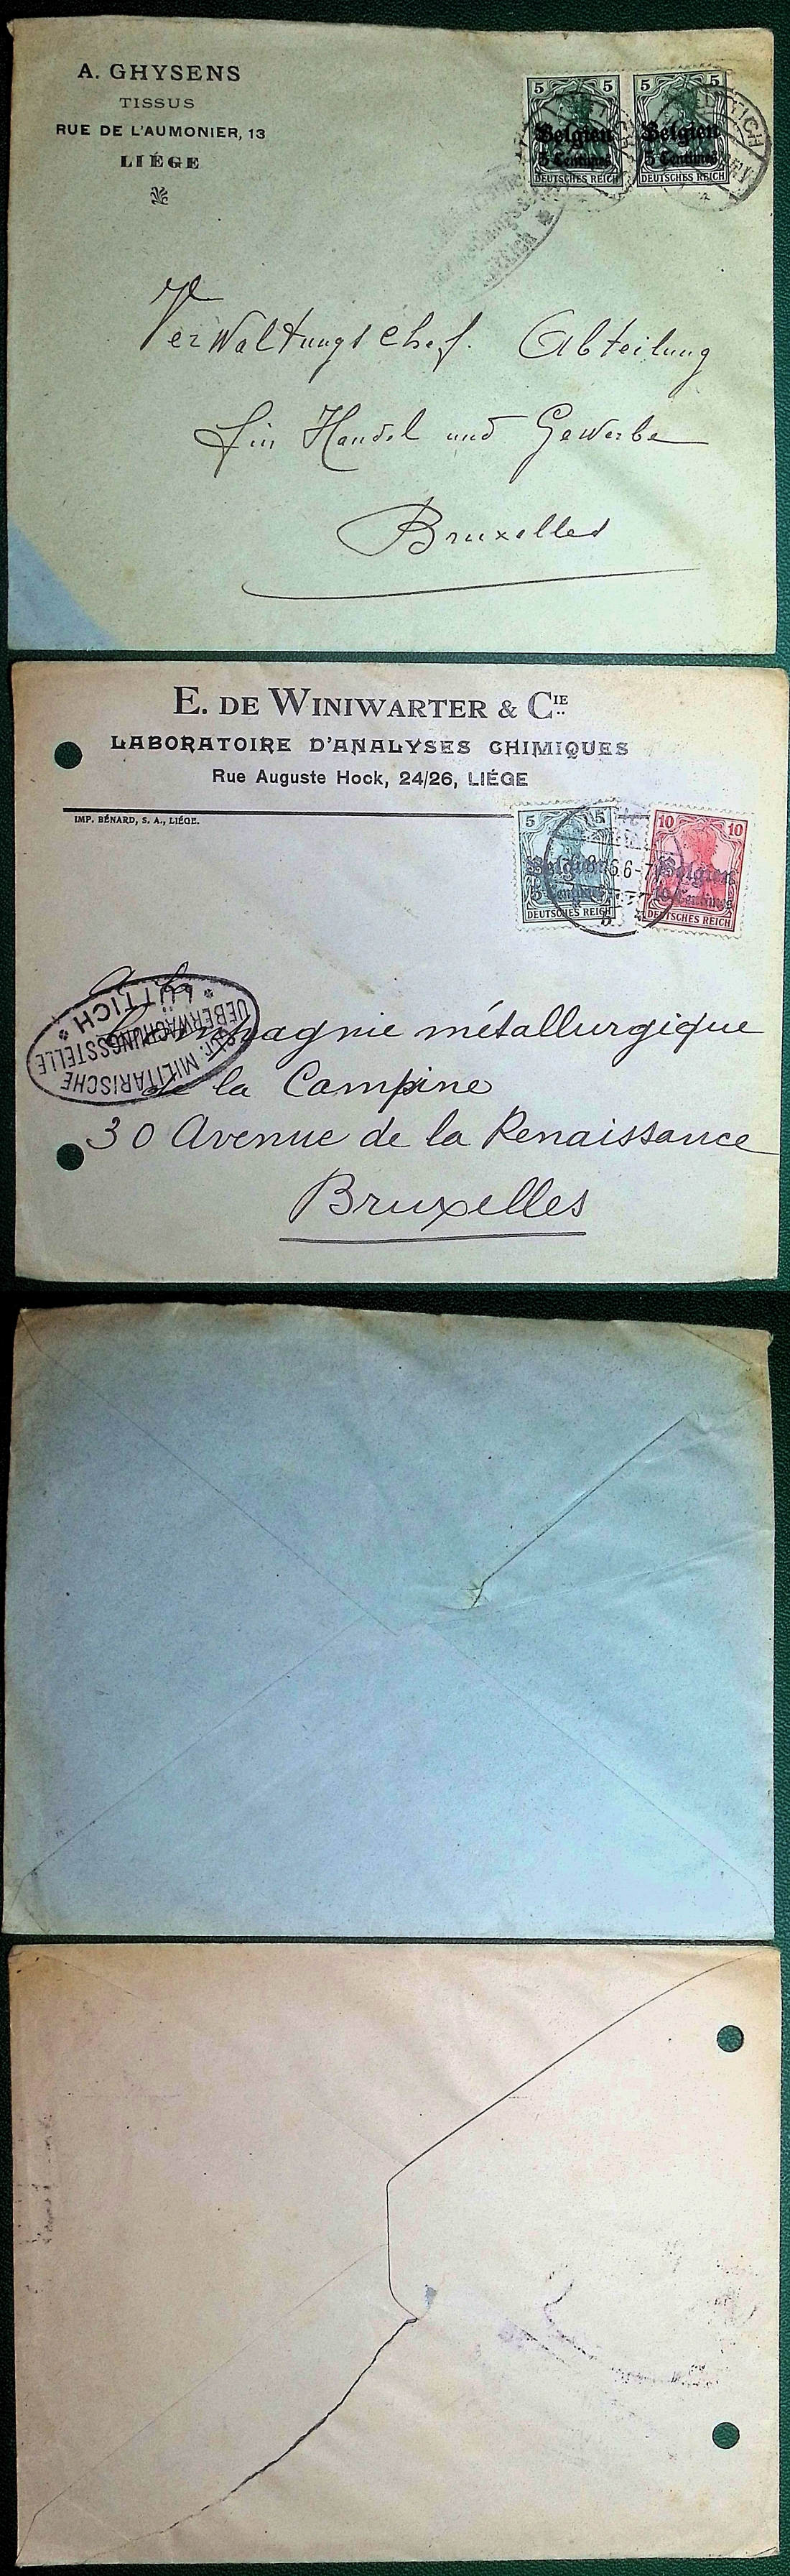 A. GHYSENS
TISSUS
RUE DE L'AUMONIER, 13
LIÉGE
5 5
Belgien
5 Centimes
DEUTSCHES REICH
5 5
Belgien
5 Centimes
DEUTSCHES REICH
Verwaltungschef. Abteilung
Für Handel und Gewerbe
Bruxelles
E. DE WINIWARTER & CIE
LABORATOIRE D'ANALYSES CHIMIQUES
Rue Auguste Hock, 24/26, LIÉGE
IMP. BÉNARD, S. A., LIÉGE.
5 5
Belgien
5 Centimes
DEUTSCHES REICH
10 10
Belgien
10 Centimes
DEUTSCHES REICH
MILITARISCHE
UEBERWACHUNGSSTELLE
* LÜTTICH *
A la
Compagnie métallurgique
de la Campine
30 Avenue de la Renaissance
Bruxelles